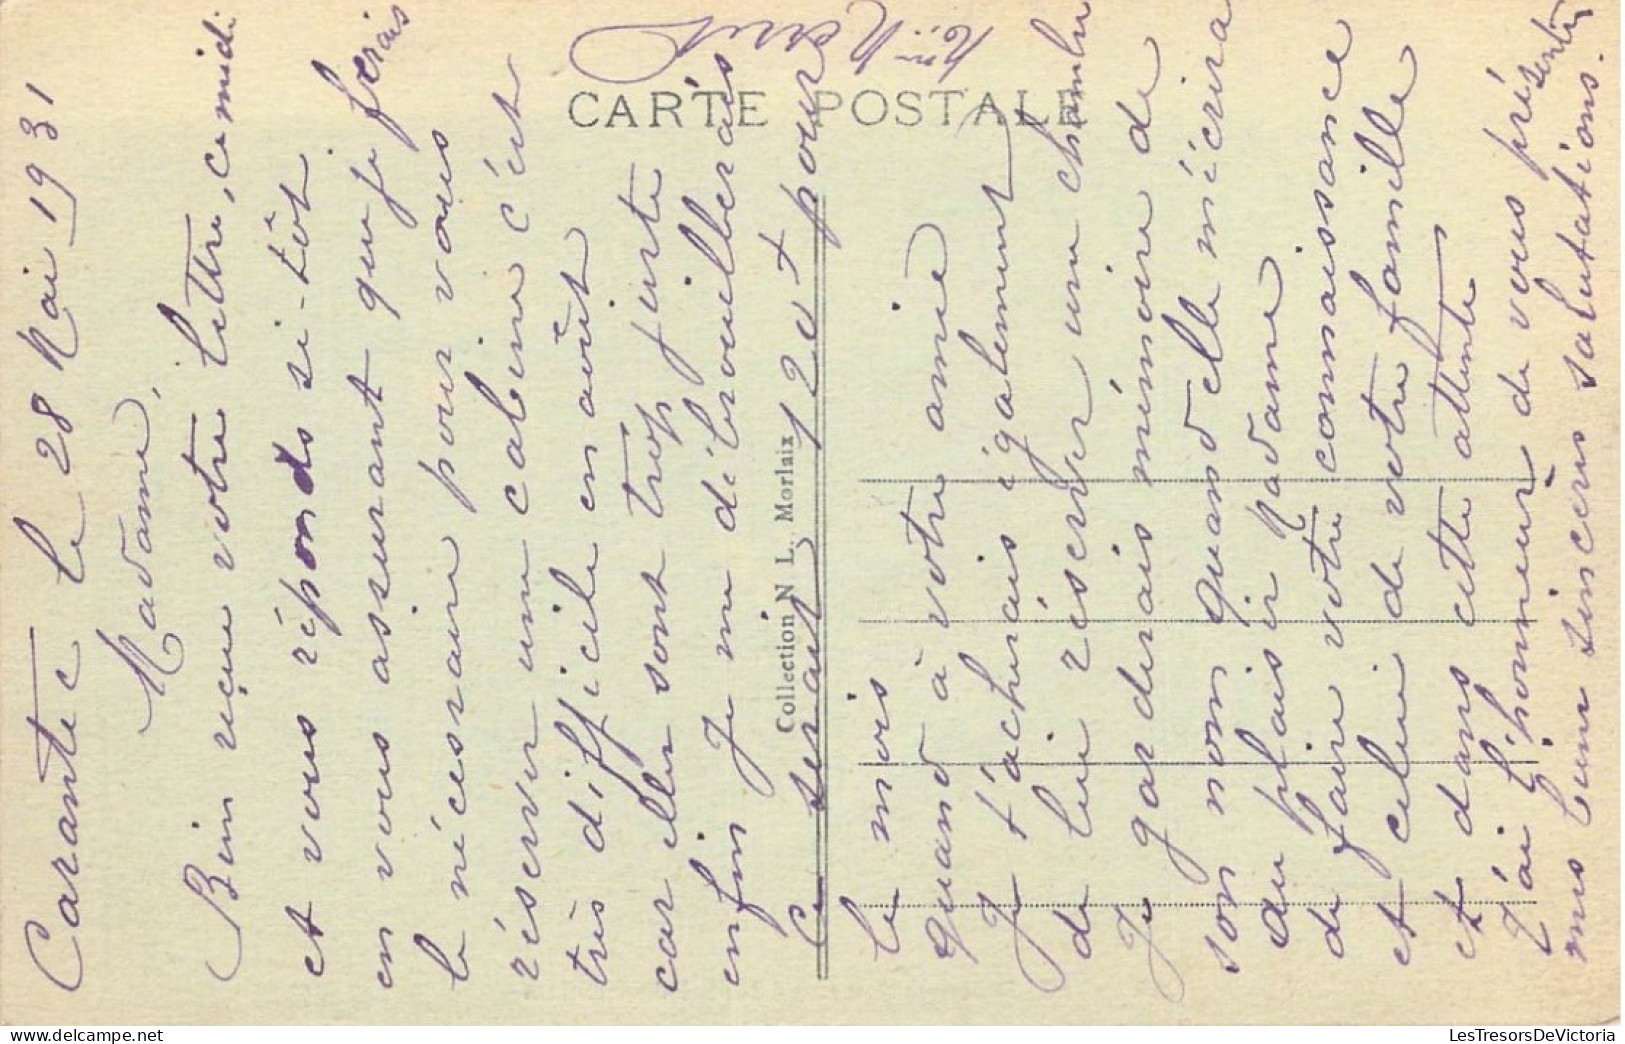 Carantec le 28 Mai 1931
Madame,
Bien reçue votre lettre, ce midi
et vous réponds si-tôt
en vous assurant que je ferais
le nécessaire pour vous
réserver une cabine c'est
très difficile en août
car elles sont trop juste
enfin je me débrouillerais
Ce serait 120f pour
le mois
quand à votre amie
Je tacherais également
de lui réserver une chambre
Je garderais mémoire de
son nom quand elle m'écrira
Au plaisir Madame
de faire votre connaissance
et celui de votre famille
et dans cette attente
J'ai l'honneur de vous présenter
mes biens sincères salutations.
CARTE POSTALE
Collection N L. Morlaix
LesTresorsDeVictoria
www.delcampe.net
LesTresorsDeVictoria